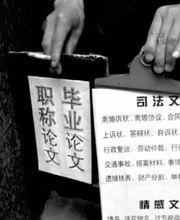 毕业论文
职称论文
司法文
离婚诉状、离婚协议、合同
上诉状、答辩状、自诉状、
行政复议、劳动仲裁、行
交通事故、报案材料、事
遗嘱扶养、财产分割、举
情感文